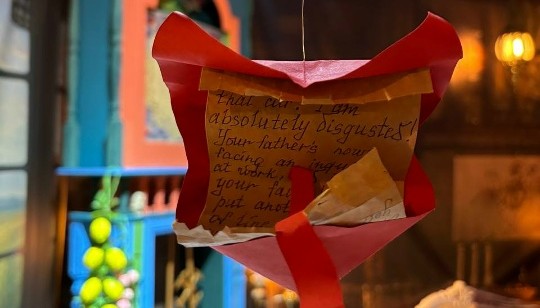 that car. I am
absolutely disgusted!
Your father's now
facing an inqu
at work,
your fa
put anot
of line